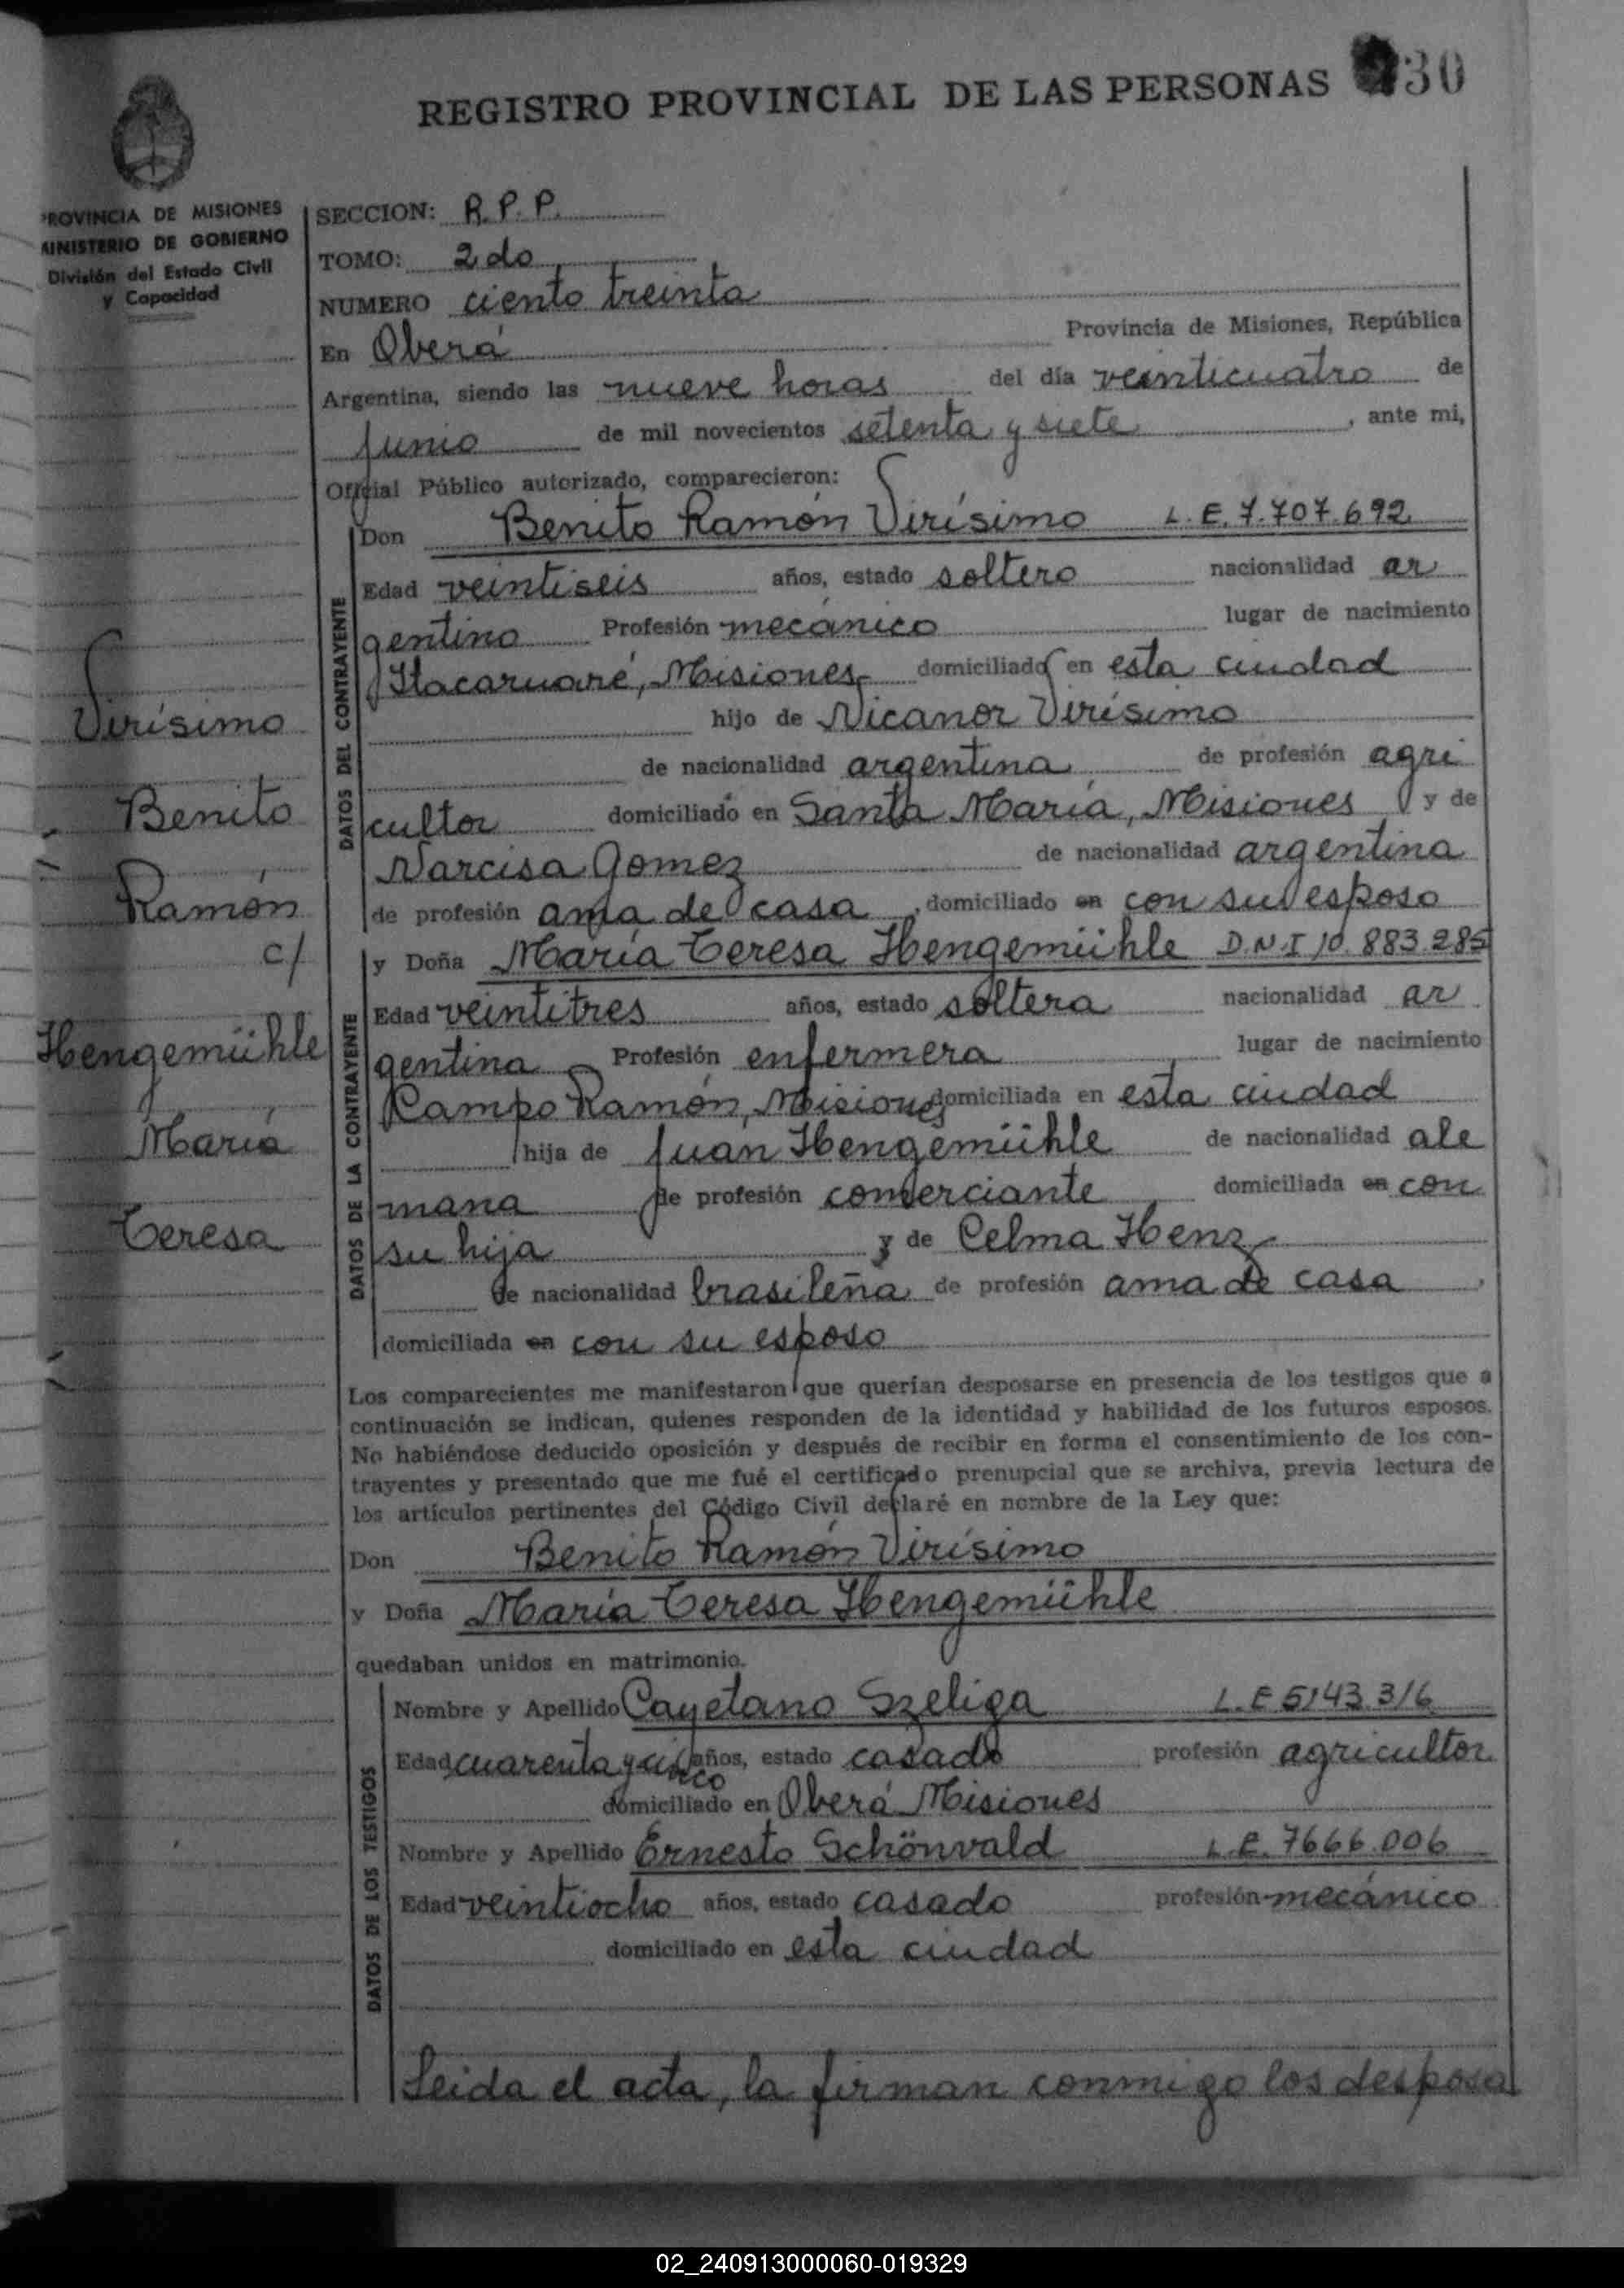 REGISTRO PROVINCIAL DE LAS PERSONAS 30
PROVINCIA DE MISIONES
MINISTERIO DE GOBIERNO
División del Estado Civil
y Capacidad
SECCION: R.P.P.
TOMO: 2do
NUMERO ciento treinta
En Oberá Provincia de Misiones, República
Argentina, siendo las nueve horas del día veinticuatro de
junio de mil novecientos setenta y siete, ante mi,
Oficial Público autorizado, comparecieron:
DATOS DEL CONTRAYENTE
Don Benito Ramón Virísimo L.E. 7.707.692
Edad veintiseis años, estado soltero nacionalidad ar
gentino Profesión mecánico lugar de nacimiento
Itacaruaré, Misiones domiciliado en esta ciudad
hijo de Nicanor Virísimo
de nacionalidad argentina de profesión agri
cultor domiciliado en Santa María, Misiones y de
Narcisa Gomez de nacionalidad argentina
de profesión ama de casa, domiciliado en con su esposo
DATOS DE LA CONTRAYENTE
y Doña María Teresa Hengemühle D.N.I 10.883.285
Edad veintitres años, estado soltera nacionalidad ar
gentina Profesión enfermera lugar de nacimiento
Campo Ramón, Misiones domiciliada en esta ciudad
hija de Juan Hengemühle de nacionalidad ale
mana de profesión comerciante domiciliada en con
su hija y de Celma Henz
de nacionalidad brasileña de profesión ama de casa,
domiciliada en con su esposo
Los comparecientes me manifestaron que querían desposarse en presencia de los testigos que a
continuación se indican, quienes responden de la identidad y habilidad de los futuros esposos.
No habiéndose deducido oposición y después de recibir en forma el consentimiento de los con-
trayentes y presentado que me fué el certificado prenupcial que se archiva, previa lectura de
los artículos pertinentes del Código Civil declaré en nombre de la Ley que:
Don Benito Ramón Virísimo
y Doña María Teresa Hengemühle
quedaban unidos en matrimonio.
DATOS DE LOS TESTIGOS
Nombre y Apellido Cayetano Szeliga L.E 5143.316
Edad cuarenta y cinco años, estado casado profesión agricultor
domiciliado en Oberá Misiones
Nombre y Apellido Ernesto Schönvald L.E. 7666.006
Edad veintiocho años, estado casado profesión mecánico
domiciliado en esta ciudad
Leida el acta, la firman conmigo los desposa
Virísimo
Benito
Ramón
c/
Hengemühle
María
Teresa
02_240913000060-019329